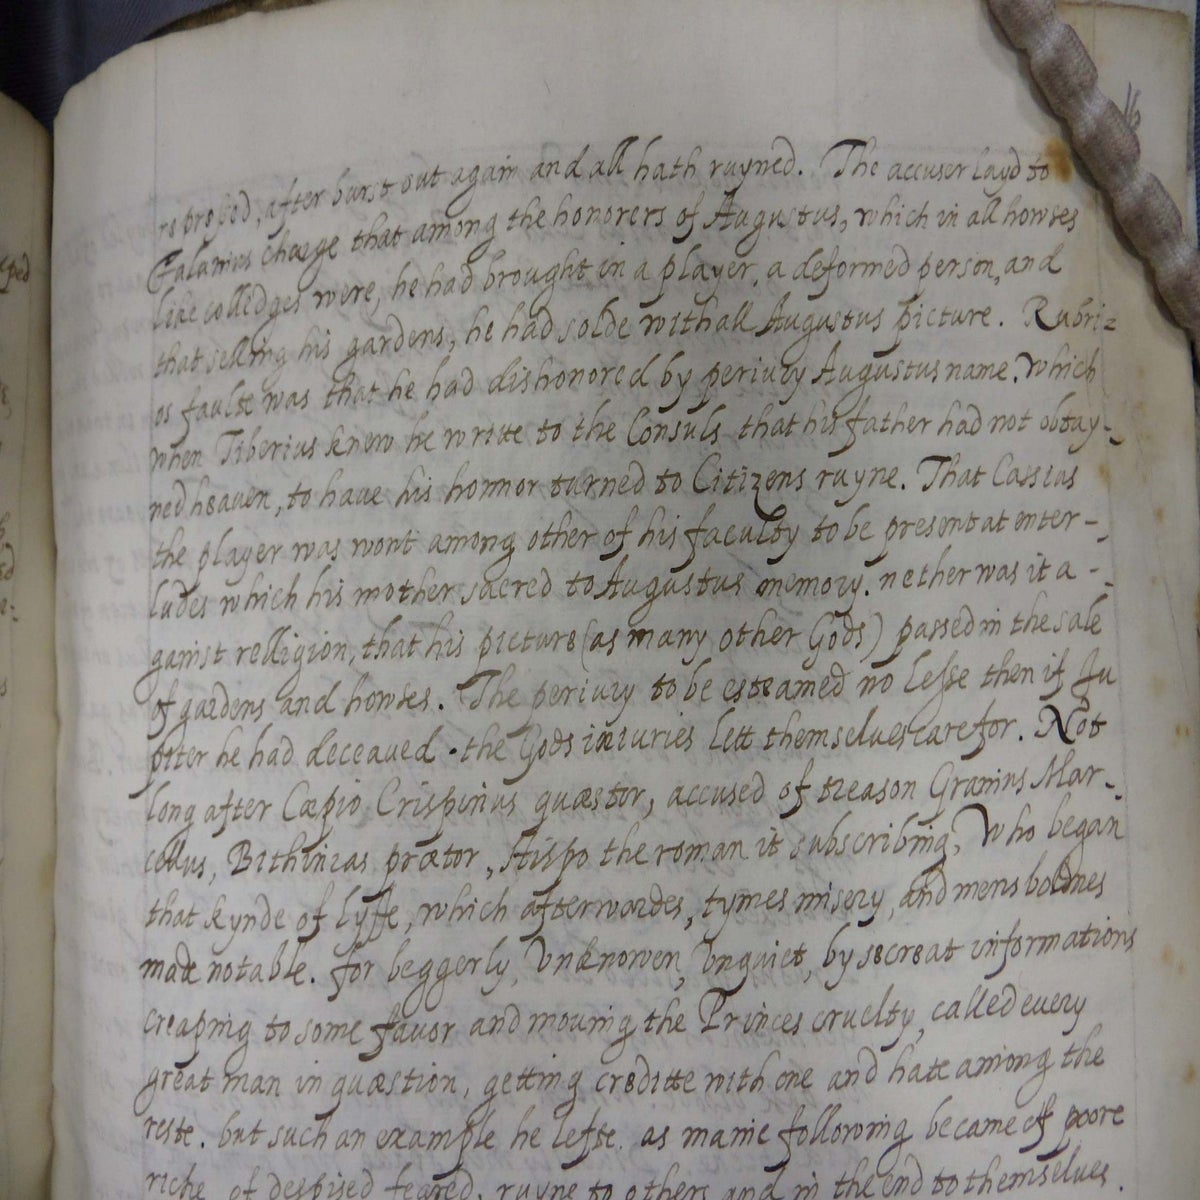 16
represed, after burst out again and all hath rayned. The accuser layd to
Falanius charge that among the honorers of Augustus, which in all howses
like colledges were, he had brought in a player, a deformed person, and
that selling his gardens, he had solde withall Augustus picture. Rubri=
us faulte was that he had dishonored by periury Augustus name. Which
when Tiberius knew he writte to the Consuls that his father had not obtay-
ned heaven, to haue his honnor turned to Citizens ruyne. That Cassius
the player was wont among other of his faculty to be present at enter-
ludes which his mother sacred to Augustus memory. nether was it a-
gainst relligion, that his picture (as many other Gods) passed in the sale
of gardens and howses. The periury to be esteamed no lesse then if Ju
piter he had deceaued. the Gods iniuries lett themselues care for. Not
long after Cæpio Crispinus quæstor, accused of treason Granius Mar-
cellus, Bithinias prætor, Hispo the roman it subscribing, Who began
that kynde of lyffe, which afterwardes, tymes misery, and mens boldnes
made notable. for beggerly, Vnknowen, Vnquiet, by secreat informations
creaping to some favor and mouing the Princes cruelty, called euery
great man in quæstion, getting creditte with one and hate among the
reste. but such an example he lefte. as manie following became of poore
riche, of despised feared, ruyne to others and in the end to themselues.